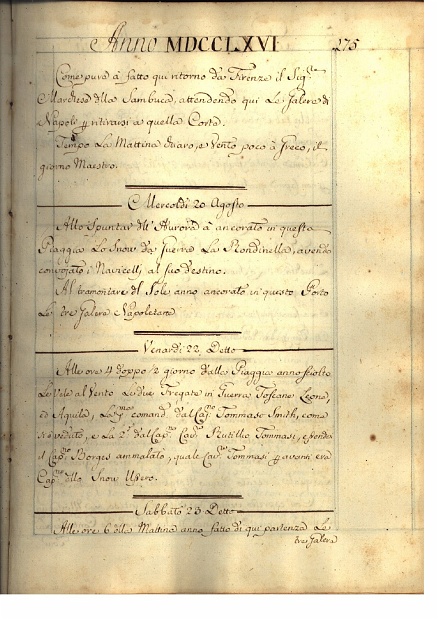 Anno MDCCLXVI 275
Come pure à fatto qui ritorno da Firenze il Sig.re
Marchese della Sambuca, attendendo qui Le Galere di
Napoli p ritirarsi a quella Corte.
Tempo La Mattina chiaro, e Vento poco à Greco, il
giorno Maestro.
Mercoldì 20 Agosto
Allo Spuntar dell' Aurora à ancorato in questa
Piaggia Lo Snow da Guerra La Rondinella, avendo
convojato i Navicelli al suo destino.
Al tramontare del Sole anno ancorato in questo Porto
Le tre Galere Napoletane
Venardì 22 Detto
Alle ore 4 doppo 1/2 giorno dalle Piaggia anno sciolto
Le Vele al Vento Le due Fregate in Guerra Toscane Leone,
ed Aquila, La p.ma comand. dal Cap.no Tommaso Smith, come
si è veduto, e La 2.a dal Cap.no Cav. Rutillio Tommasi, essendo
il Cap.no Borges ammalato, quale Cav. Tommasi p avanti era
Cap.no dello Snow Ussero.
Sabbato 23 Detto
Alle ore 6 della Mattina anno fatto di qui partenza Le
tre Galere